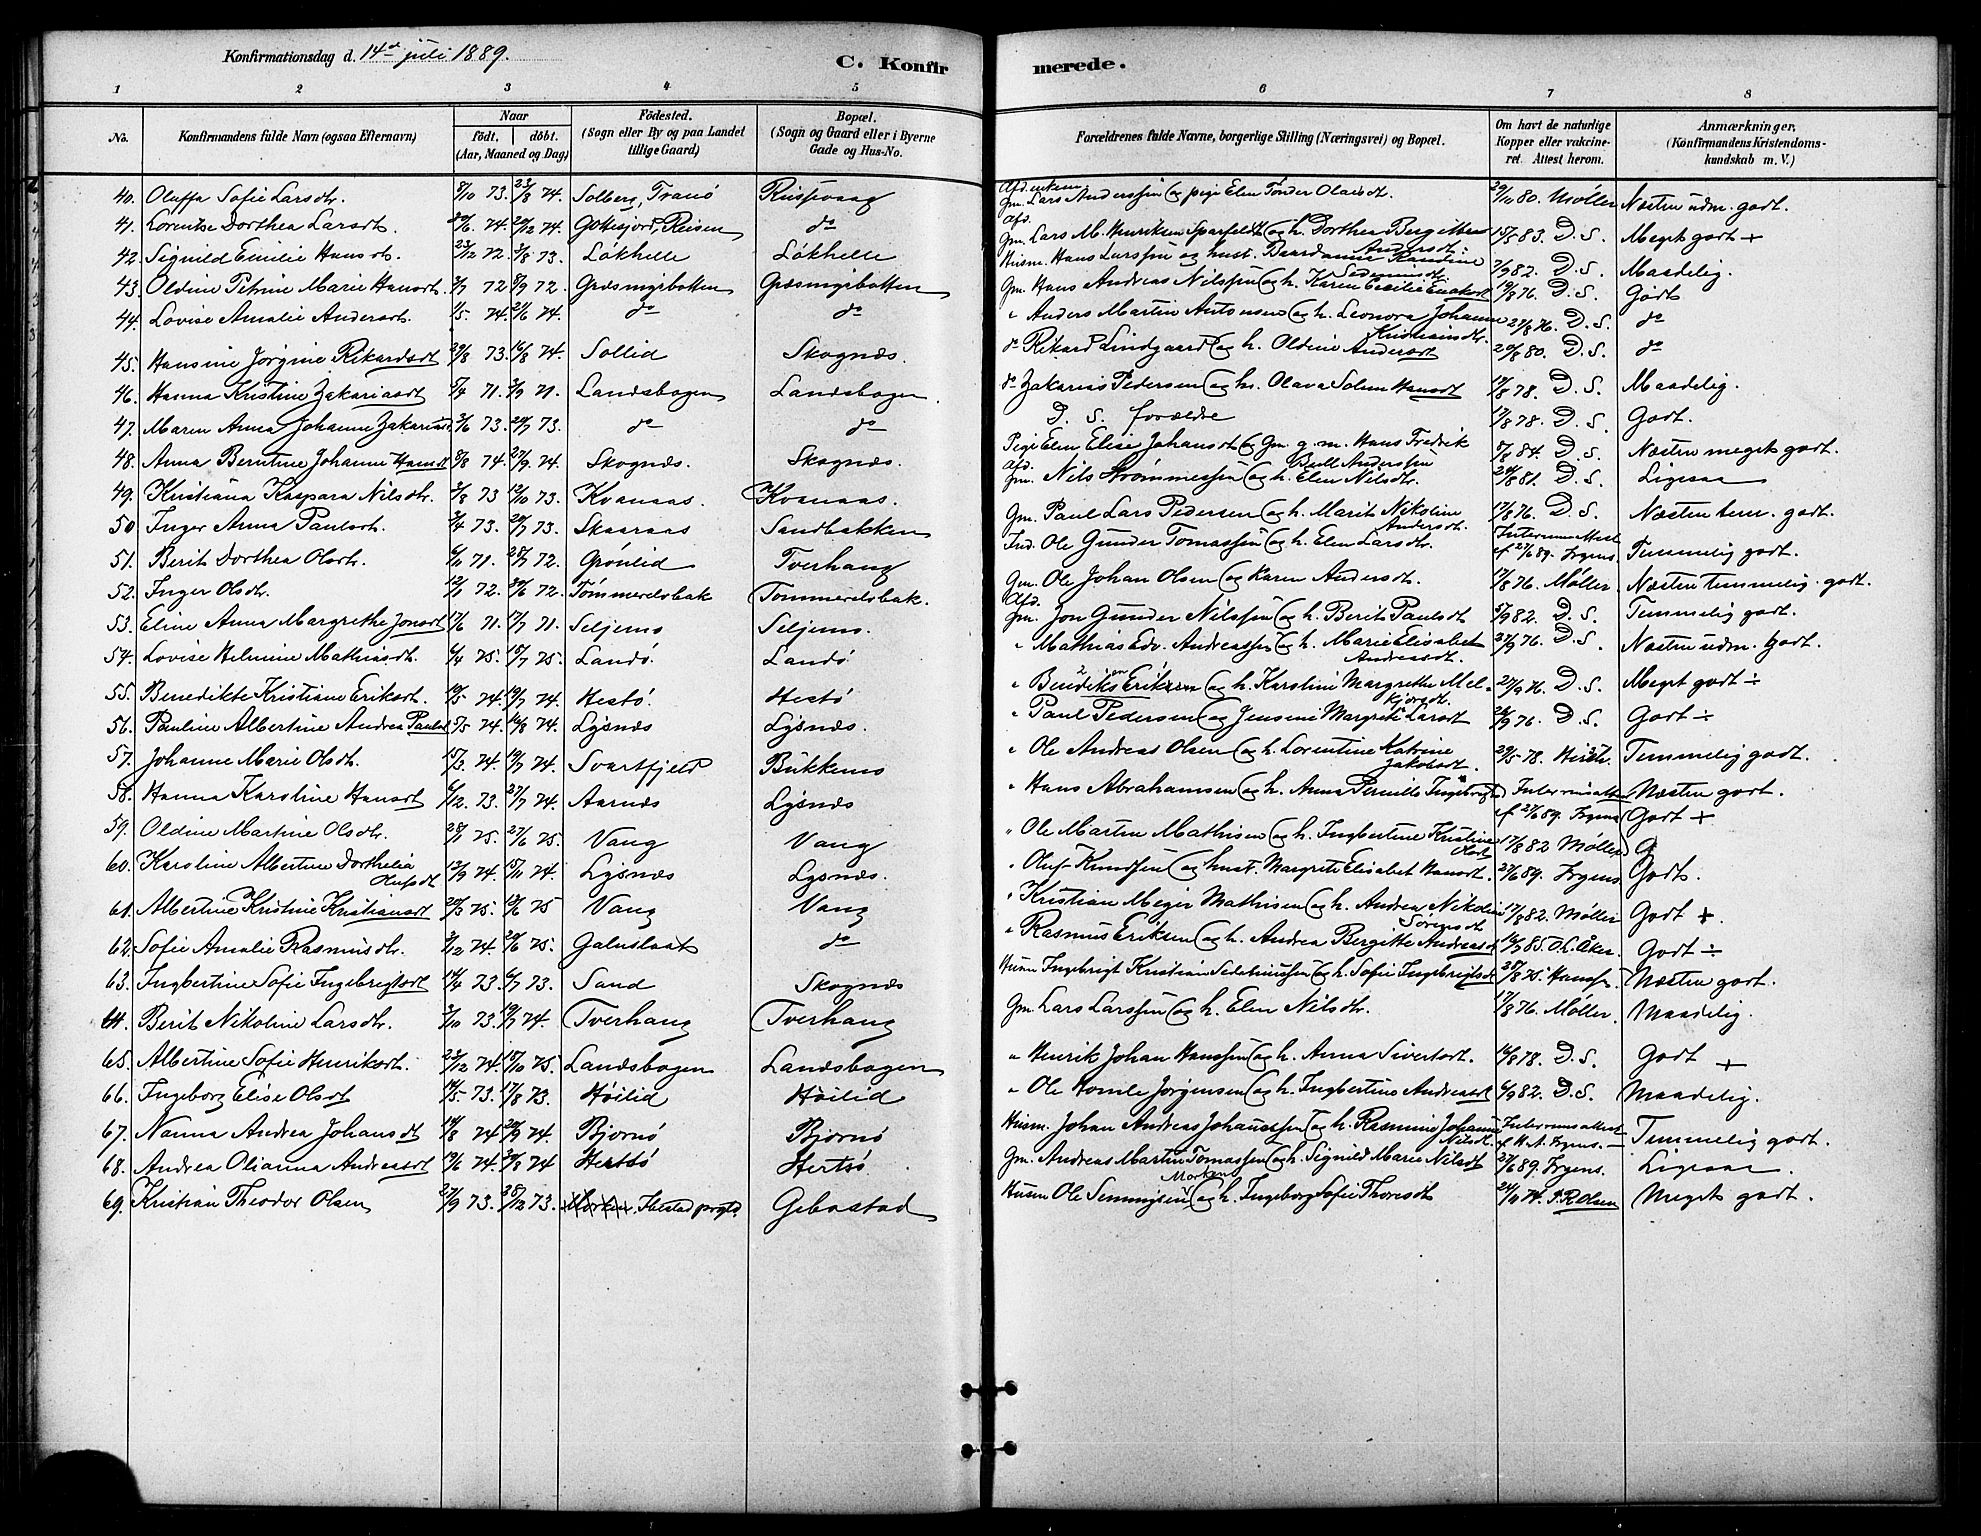 Konfirmationsdag d. 14de juli 1889.
C. Konfirmerede.
1 2 3 4 5 6 7 8
No. Konfirmandens fulde Navn (ogsaa Efternavn) Naar født, døbt. (Aar, Maaned og Dag) Fødested. (Sogn eller By og paa Landet tillige Gaard) Bopæl. (Sogn og Gaard eller i Byerne Gade og Hus-No. Forældrenes fulde Navne, borgerlige Stilling (Næringsvei) og Bopæl. Om havt de naturlige Kopper eller vakcineret. Attest herom. Anmærkninger, (Konfirmandens Kristendomskundskab m. V.)
40. Oluffa Sofie Larsdtr. 8/10 73. 23/8 74. Solberg, Tranö Lars Anderssen og pige Elen Tönder Olaisdt. 29/10 80. Møller Næsten udm. godt.
41. Lorentse Dorthea Larsdt. 30/6 74. 29/12 74. Reisen do Gm. Lars M. Henriksen Sparfeldt og h. Dorthea Bergitte Andersdt. 15/5 83. D. S. Meget godt +
42. Signild Emilie Hansdt. 23/12 72. 3/8 73. Løkhelle Løkhelle Husm. Hans Larssen og hust. 7/9 82. D. S. Maadelig.
43. Oldine Petrine Marie Hansdt. 3/7 72 8/9 72. Græsmyrbotten Græsmyrbotten Gm. Hans Andreas Nilssen og h. Karen Cecilie 19/8 76. D. S. Godt
44. Lovise Amalie Andersdt. 1/5. 74. 21/6 74. do do " Anders Martin Antonsen og h. Leonora Johanne Kristiansdt. 27/8 76. D. S. do
45. Hansine Jørgine Rikardsdt 29/8 73. 16/8 74. Sollid Skognæs. do Rikard Lindgaard og h. Oldine Andersdt 20/8 80. D. S. do
46. Hanna Kristine Zakariasdt 5/4 71. 3/9 71. Landsbogen Landsbogen. do Zakarias Pedersen og h. Olava Hansdt 17/8 78. D. S. Maadelig.
47. Maren Anna Johanne Zakariasdt 3/6 73. 20/7 73. do do D. S. forældre 17/8 78. D. S. Godt.
48. Anna Berntine Johanne Hansdt 8/8 74. 27/9. 74. Skognæs. Skognæs. Pige Elen Elise Johansdt og Gm. g. m. Hans Fredrik Bull Anderssen 8/6 84. D. S. Næsten meget godt.
49. Kristiana Kaspara Nilsdtr. 3/8 73 12/10 73. Kvanaas. Kvanaas. Afd. Gm. Nils Strømmessen og h. Elen Nilsdtr. 20/8 81. D. S. Ligesaa
50. Inger Anna Paulsdt. 3/4 73. 20/7 73. Skaaraas Sandbakken Gm. Paul Lars Pedersen og h. Marit Nikoline Andersdt. 17/8 76. D. S. Næsten tem. godt.
51. Berit Dorthea Olsdtr. 71. 28/7 72. Grönlid Tverhaug Ind. Ole Gunder Tomassen og h. Elen Larsdtr. Interimsattest af 27/6 89. Irgens. Temmelig godt.
52. Inger Olsdtr. 12/1 72. 30/6 72. Tömmerelsbak Tömmerelsbak. Gm. Ole Johan Olsen og Karen Andersdt. 17/8 76. Møller. Næsten temmelig godt.
53. Eline Anna Margrethe Jonsdt 17/6 71. 17/7 71. Seljemo Seljemo. Afd. Gm. Jon Gunder Nilssen og h. Berit Paulsdt 5/9 82. D. S. Temmelig godt.
54. Lovise Helmine Mathiasdt. 6/4 75. 18/7 75. Landö. Landö " Mathias Edv. Andreassen og h. Marie Elisabet Andreasdt. 27/9 76. D. S. Næsten udm. godt.
55. Benedikte Kristiane Eriksdt. 19/5 74. 19/7 74. Hestö. Hestö " Erik og h. Karoline Margrethe Melkjorsdt. 27/9 76. D. S. Meget godt ÷
56. Pauline Albertine Andrea Paulsd 5/5 74. 16/8 74. Lysnæs Lysnæs. " Paul Pedersen og Jensine Margrete Larsdt 26/9 76. D. S. Godt ÷
57. Johanne Marie Olsdt. 15/3 74. 19/7 74. Svartfjeld Bukkemo " Ole Andreas Olsen og h. Lorentine Katrine Jakobsdt. 29/5 78. Temmelig godt.
58. Hanna Karoline Hansdt 6/12 73. 27/7 74. Aarnæs Lysnæs " Hans Abrahamsen og h. Anna Pernille Interimsattest af 27/6 89. Irgens Næsten godt.
59. Oldine Martine Olsdtr. 28/1 75. 27/6 75. Vang Vang " Ole Marten Mathisen og h. Ingbertine Kristine Olsdt 17/8 82 Møller Godt +
60. Karoline Albertine Dorthelia Olufsdt 13/9 74. 15/11 74. Lysnæs Lysnæs. " Oluf Knudsen og hust. Margrete Elisabet Hansdt. 27/6 89. Irgens Godt.
61. Albertine Kristine Kristiansdt 20/3 75. 13/6 75 Vang Vang " Kristian Meyer Mathisen og h. Andrea Nikoline Sörensdt 17/8 82. Møller Godt +.
62. Sofie Amalie Rasmusdtr. 3/12 74. 20/6 75. Galnslaat do " Rasmus Eriksen og h. Andrea Bergitte Andreasdt 16/7 85. Aker. Godt ÷
63. Ingbertine Sofie Ingebrigtsdt 14/4 73. 6/7 73. Sand Skognæs Husm Ingebrigt Kristian og h. Sofie Ingebrigtsdt 28/8 75. Hanssen. Næsten godt.
64. Berit Nikoline Larsdtr. 3/10 73. 19/7 74. Tverhaug Tverhaug Gm. Lars Larssen og h. Elen Nilsdtr. 17/8 76. Møller. Maadelig.
65. Albertine Sofie Henriksdt. 23/12 74. 15/10 75. Landsbogen Landsbogen " Henrik Johan Hanssen og h. Anna Sivertsdt. 16/8 78. D. S. Godt +
66. Ingeborg Elise Olsdt 14/5 73. 17/8 73. Höilid Höilid " Ole Jørgensen og h. Ingbertine Andreasdt 6/9 82. D. S. Maadelig.
67. Nanna Andrea Johansdt 19/8 74. 20/9 74. Bjornö Bjornö Husm. Johan Andreas Johanessen og h. Rasmine Johanne Nilsdt. Interimsattest af Irgens. Temmelig godt.
68. Andrea Olianna Andreasdt 19/6 74. 30/8 74 Hertsö Hertsö Gm. Andreas Martin Tomassen og h. Signild Marie Nilsdt 27/6 89. Irgens. Ligesaa
69. Kristian Theodor Olsen 27/9 73. 28/12 73. Ibestad prgjld. Gibostad Husm Ole og h. Ingeborg Sofie Thoresdt 24/11 74. Olsen Meget godt.